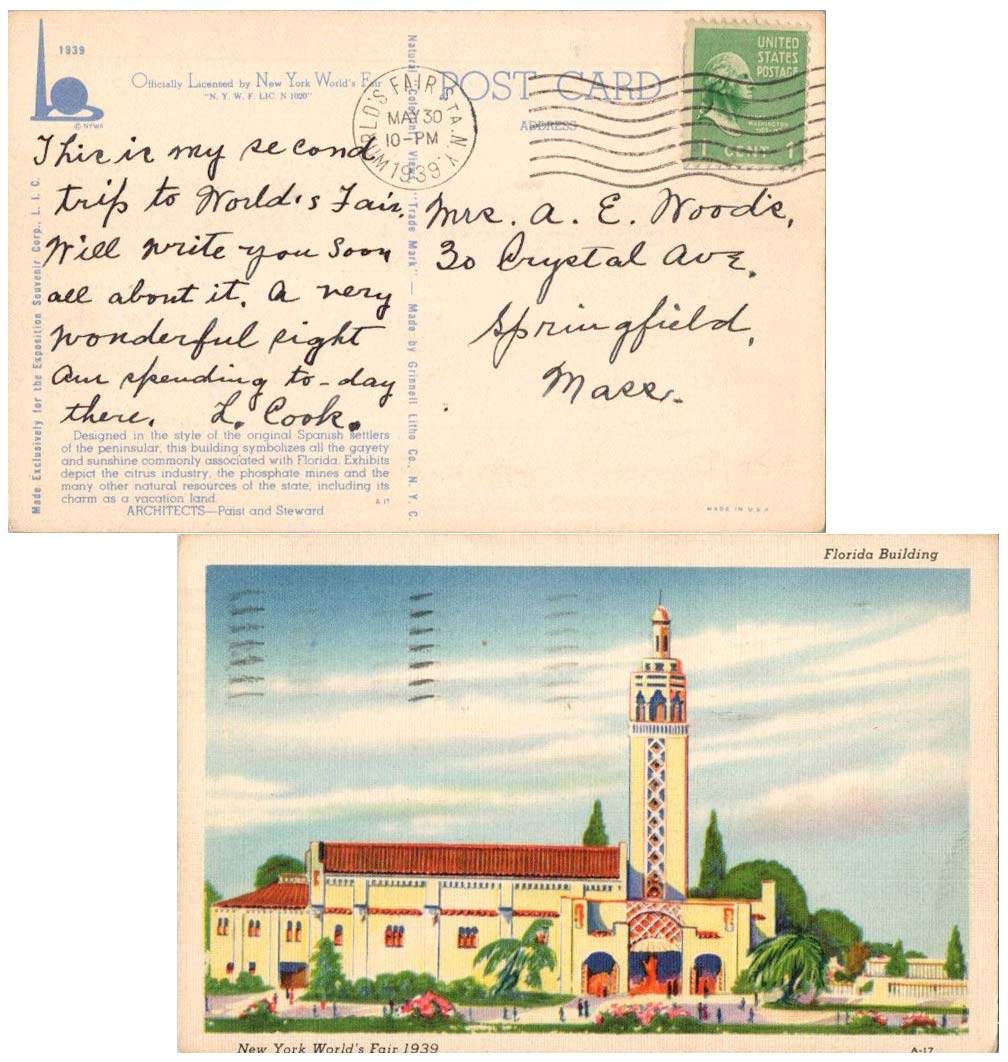 1939
© NYWF
Officially Licensed by New York World's Fair
"N. Y. W. F. LIC. N 1020"
POST CARD
ADDRESS
WORLD'S FAIR STA. N.Y.
MAY 30
10-PM
1939
UNITED
STATES
POSTAGE
WASHINGTON
1 CENT 1
This is my second
trip to World's Fair.
Will write you soon
all about it. A very
wonderful sight
Am spending to-day
there. L. Cook.
Mrs. A. E. Woods,
30 Crystal Ave.
Springfield,
Mass.
Made Exclusively for the Exposition Souvenir Corp., L. I. C.
Natural Coloring Views "Trade Mark" — Made by Grinnell Litho Co., N. Y. C.
Designed in the style of the original Spanish settlers
of the peninsular, this building symbolizes all the gayety
and sunshine commonly associated with Florida. Exhibits
depict the citrus industry, the phosphate mines and the
many other natural resources of the state, including its
charm as a vacation land.
A 17
ARCHITECTS—Paist and Steward
MADE IN U.S.A
Florida Building
New York World's Fair 1939
A-17